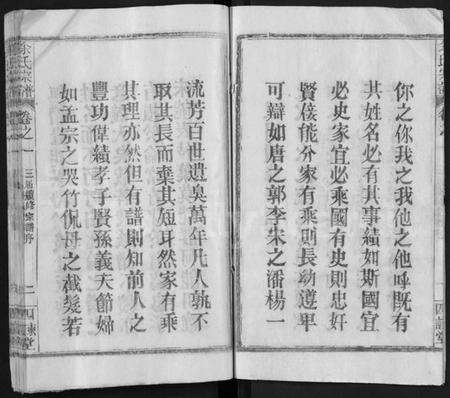 你之你我之我他之他呼既有
其姓名必有其事績如斯國宜
必史家宜必乘國有史則忠奸
賢佞能分家有乘則長幼遵卑
可辯如唐之郭李宋之潘楊一
流芳百世遺臭萬年凡人孰不
取其長而棄其短耳然家有乘
其理亦然但有譜則知前人之
豐功偉績孝子賢孫義夫節婦
如孟宗之哭竹佩母之截髮若
余氏宗譜
卷之一
三屆續修宗譜序
二
四諫堂